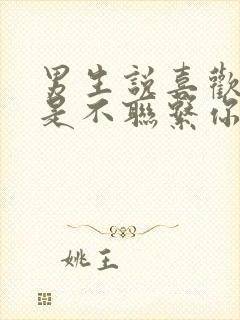 男生說喜歡
是不聯繫你
姚王